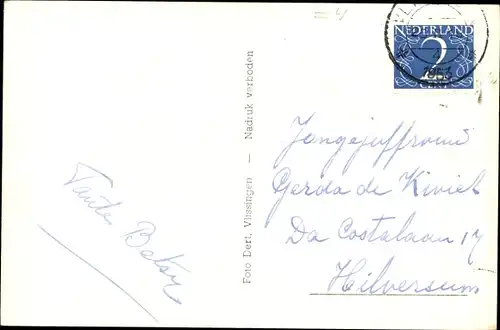 NEDERLAND
2
1953
CENT
Foto Dert, Vlissingen — Nadruk verboden
Tante Betsy
Jongejuffrouw
Gerda de Kiviet
Da Costalaan 17
Hilversum